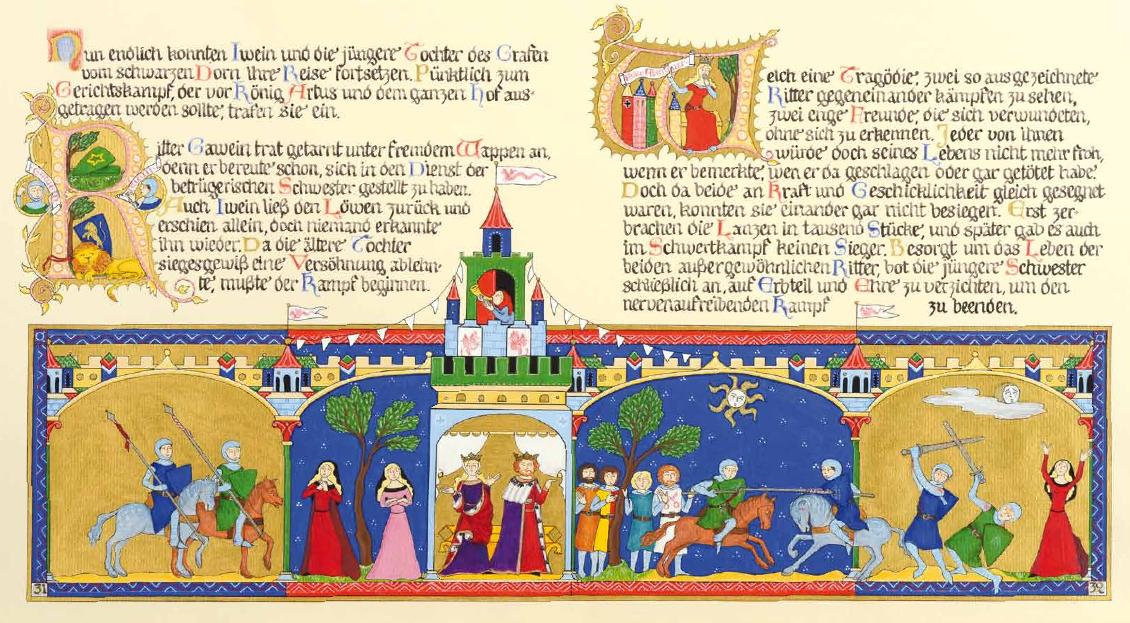 Nun endlich konnten Iwein und die jüngere Tochter des Grafen
vom schwarzen Dorn ihre Reise fortsetzen. Pünktlich zum
Gerichtskampf, der vor König Artus und dem ganzen Hof aus-
getragen werden sollte, trafen sie ein.
Ritter Gawein trat getarnt unter fremdem Wappen an,
denn er bereute schon, sich in den Dienst der
betrügerischen Schwester gestellt zu haben.
Auch Iwein ließ den Löwen zurück und
erschien allein, doch niemand erkannte
ihn wieder. Da die ältere Tochter
siegesgewiß eine Versöhnung ablehn-
te, mußte der Kampf beginnen.
Welch eine Tragödie, zwei so ausgezeichnete
Ritter gegeneinander kämpfen zu sehen,
zwei enge Freunde, die sich verwundeten,
ohne sich zu erkennen. Jeder von ihnen
würde doch seines Lebens nicht mehr froh,
wenn er bemerkte, wen er da geschlagen oder gar getötet habe.
Doch da beide an Kraft und Geschicklichkeit gleich gesegnet
waren, konnten sie einander gar nicht besiegen. Erst zer-
brachen die Lanzen in tausend Stücke, und später gab es auch
im Schwertkampf keinen Sieger. Besorgt um das Leben der
beiden außergewöhnlichen Ritter, bot die jüngere Schwester
schließlich an, auf Erbteil und Ehre zu verzichten, um den
nervenaufreibenden Kampf zu beenden.
31
32